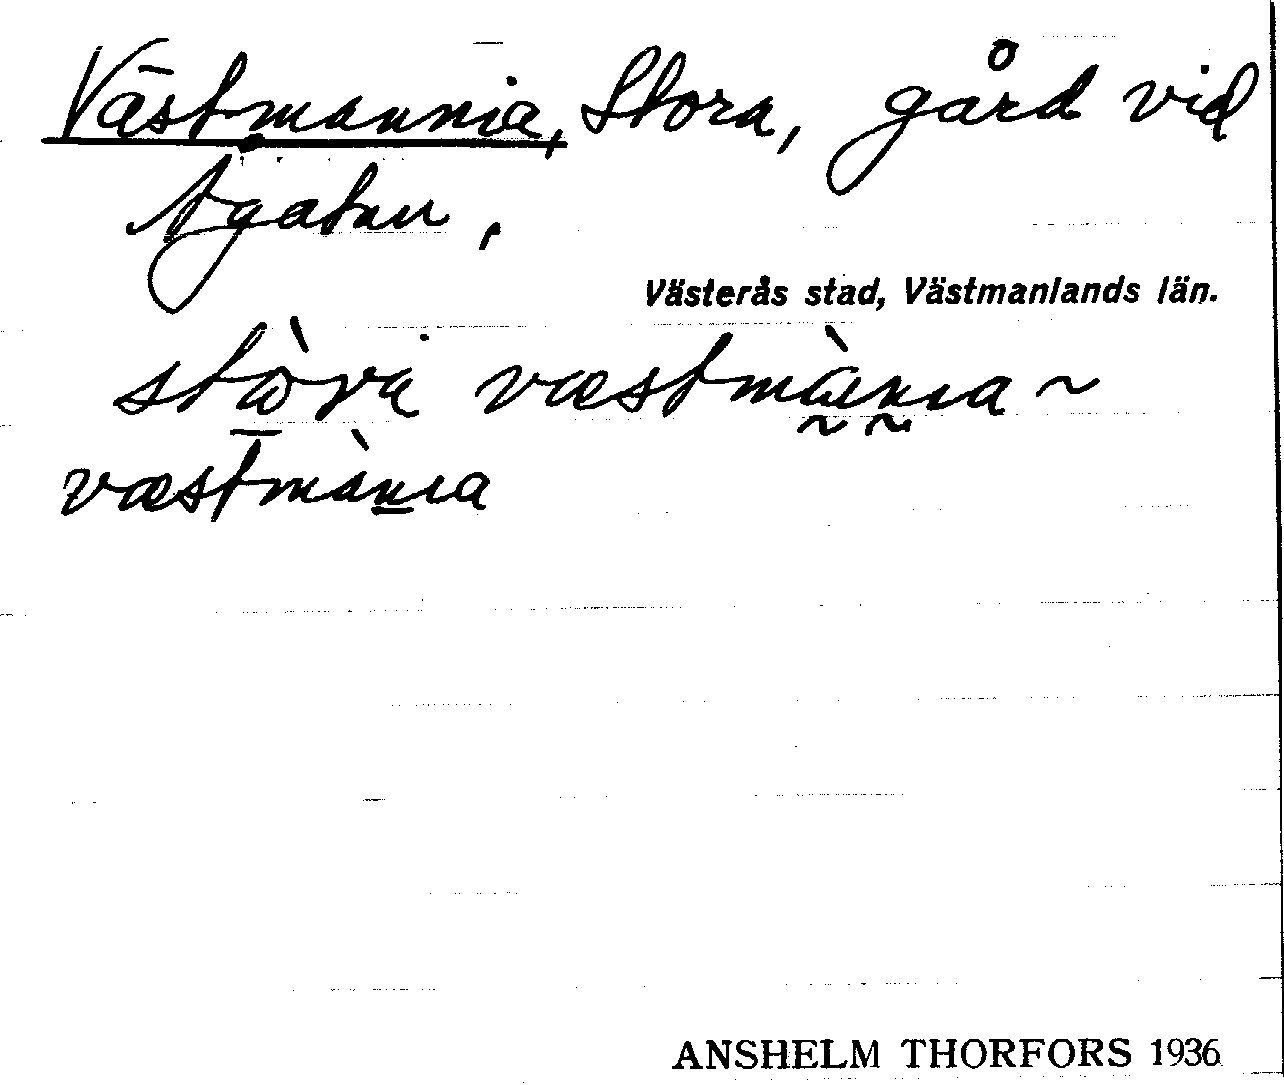 Västmannia, Stora, gård vid
Ågatan,
Västerås stad, Västmanlands län.
stòra væstmànıa ~
væstmànıa
ANSHELM THORFORS 1936